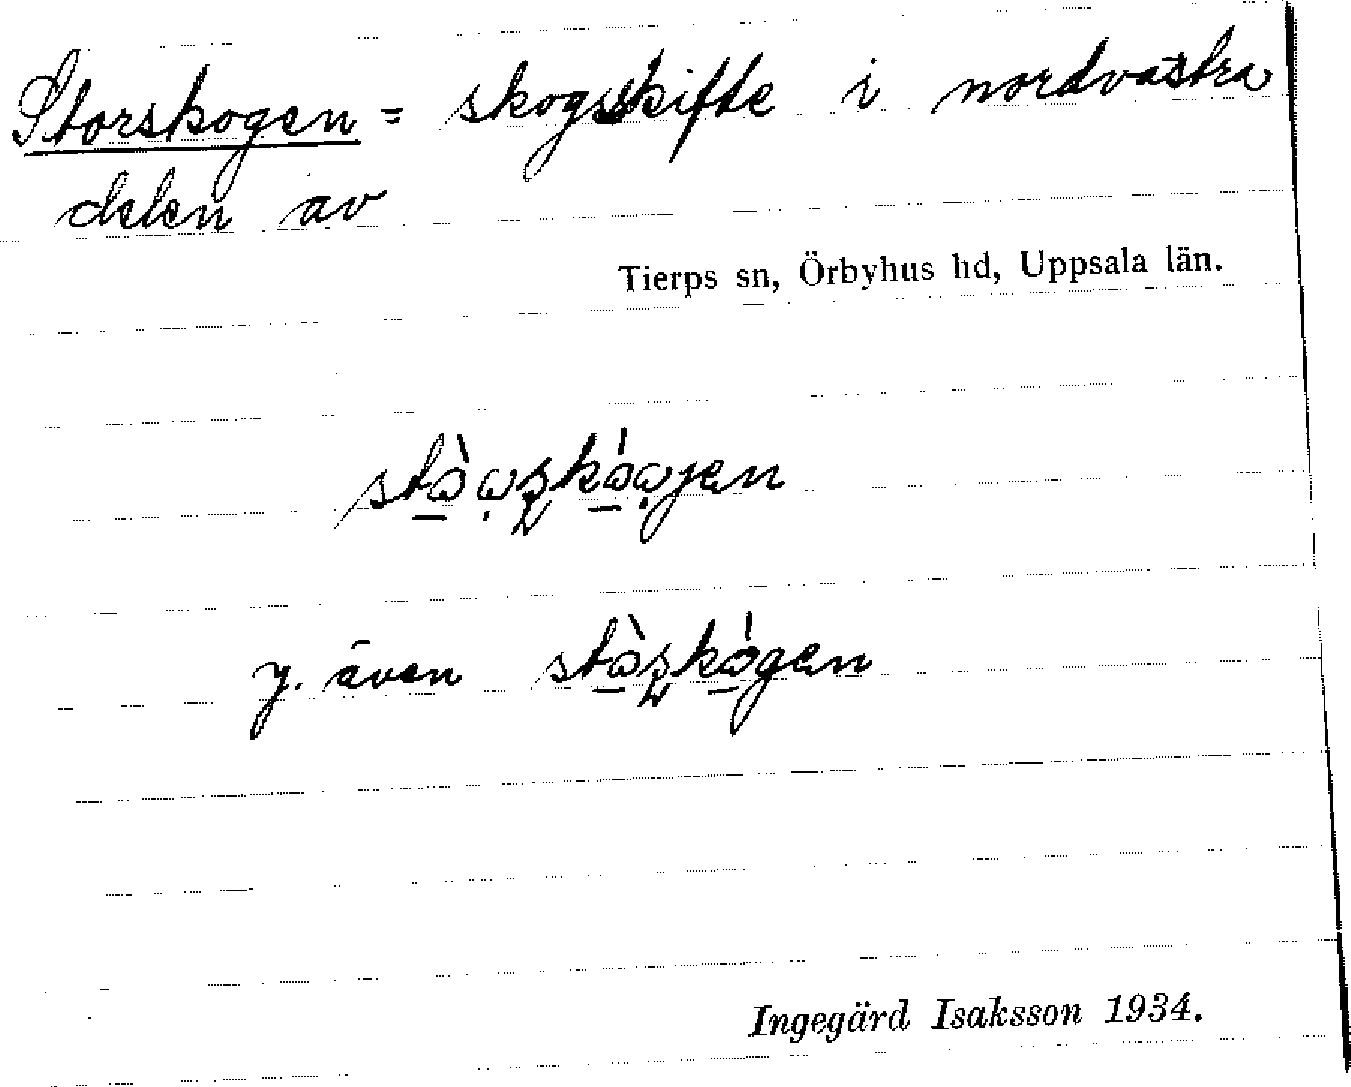 Storskogen = skogsskifte i nordvästra
delen av
Tierps sn, Örbyhus hd, Uppsala län.
y. även
Ingegärd Isaksson 1934.